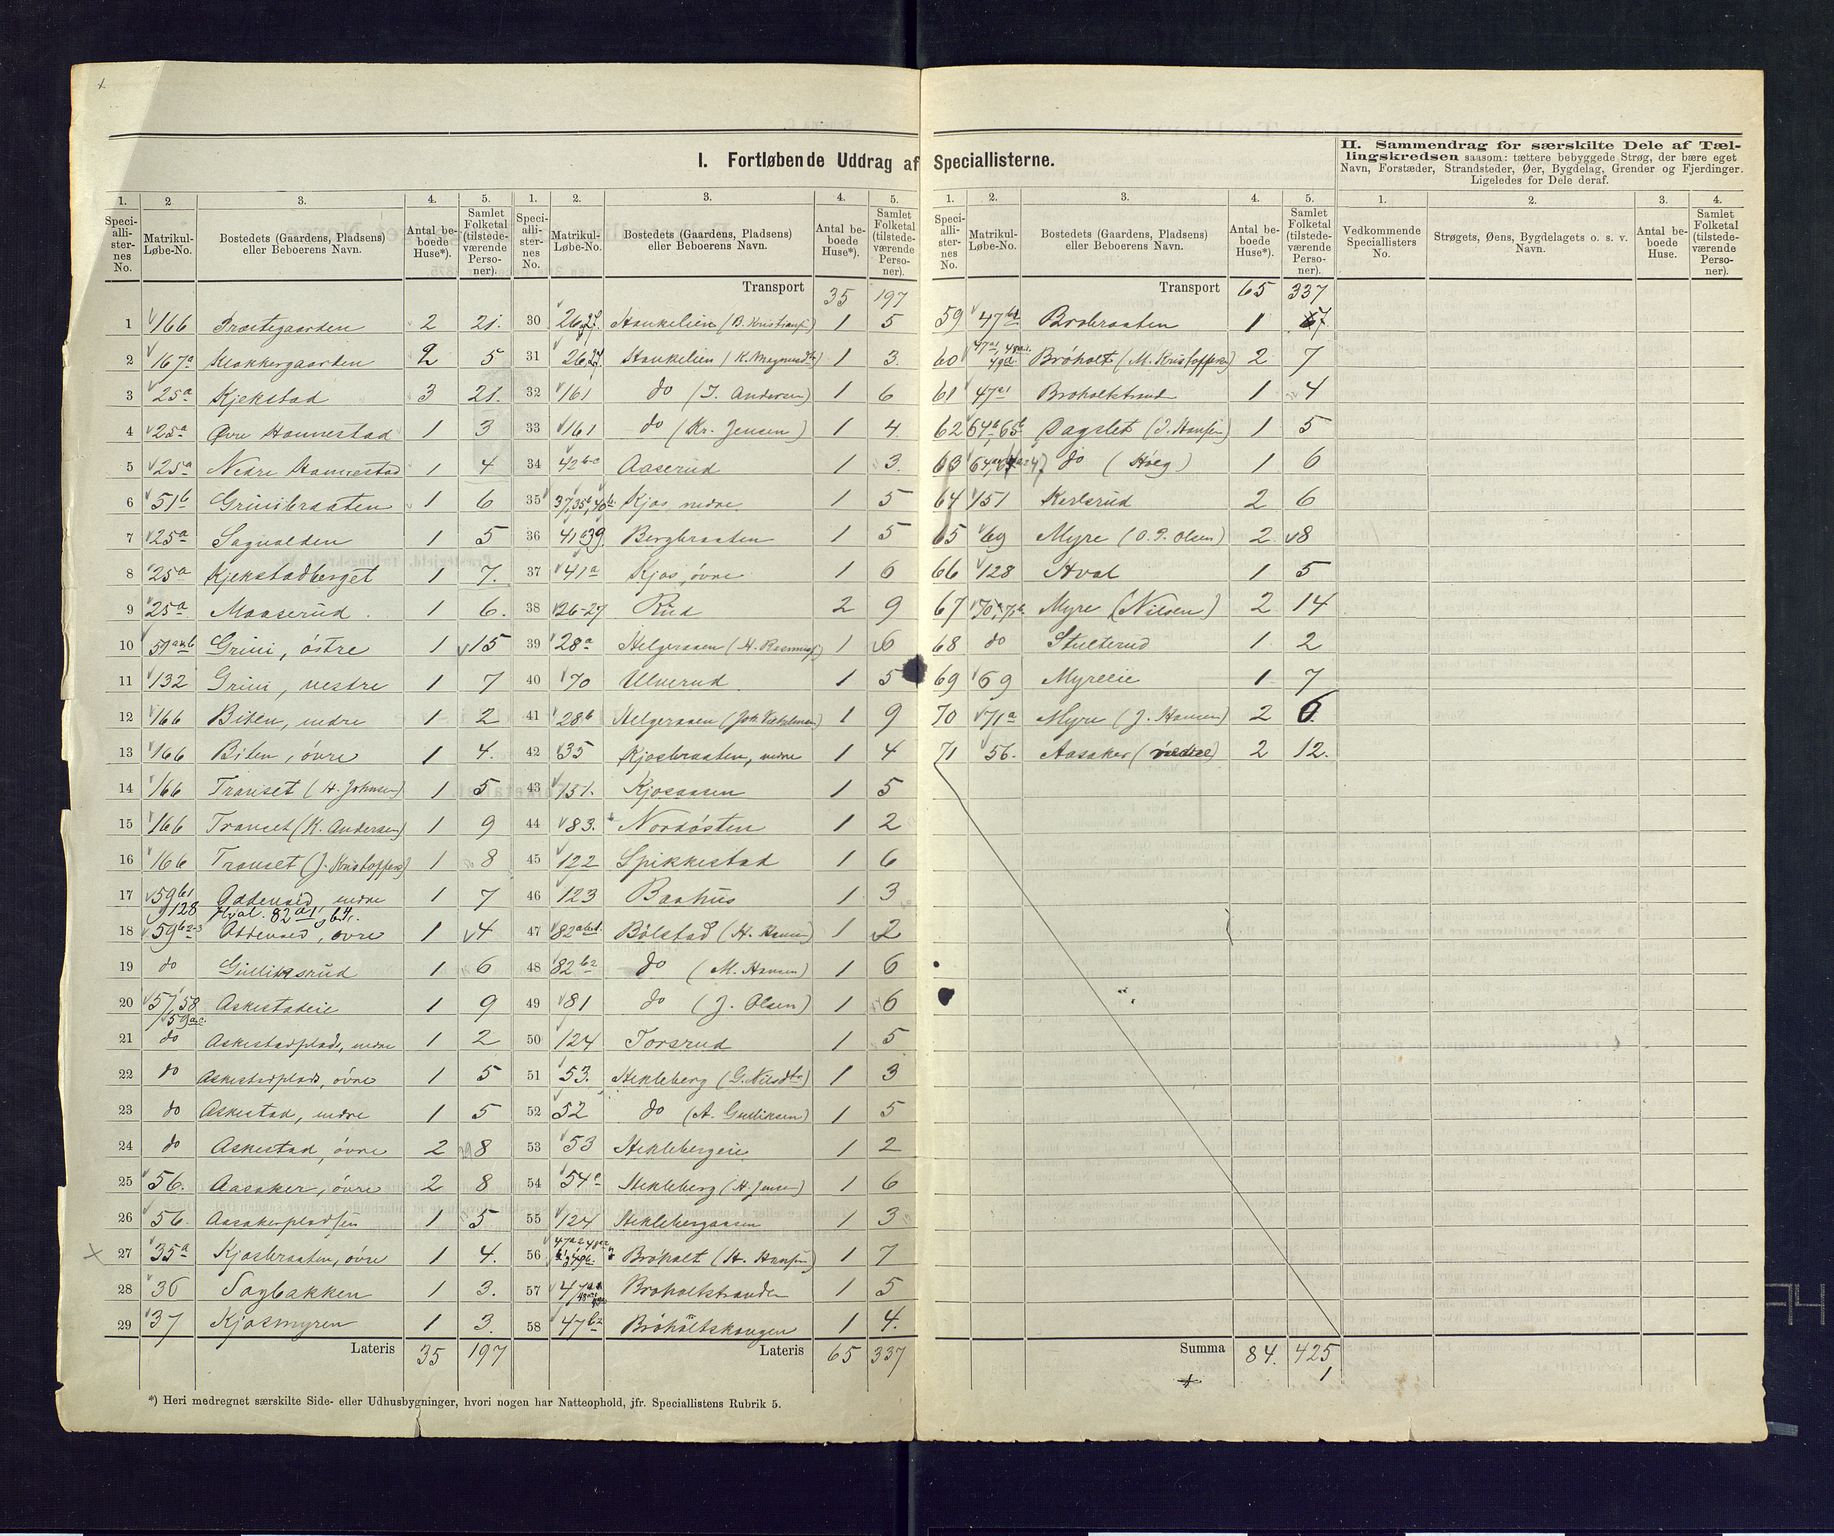 I. Fortløbende Uddrag af Speciallisterne.
II. Sammendrag for særskilte Dele af Tællingskredsen saasom: tættere bebyggede Strøg, der bære eget Navn, Forstæder, Strandsteder, Øer, Bygdelag, Grender og Fjerdinger. Ligeledes for Dele deraf.
1. 2 3. 4. 5. 1. 2. 3. 4. 5.
Speciallisternes No. Matrikul-Løbe-No. Bostedets (Gaardens, Pladsens) eller Beboerens Navn. Antal beboede Huse*). Samlet Folketal (tilstedeværende Personer).
Speciallisternes No. Matrikul-Løbe-No. Bostedets (Gaardens, Pladsens) eller Beboerens Navn. Antal beboede Huse*). Samlet Folketal (tilstedeværende Personer).
Transport 35 197
1 166 Præstegaarden 2 21.
2 167a Klokkergaarden 2 5
3 25a Kjekstad 3 21.
4 25a Øvre Hannestad 1 3
5 25a Nedre Hannestad 1 4
6 51b Grinibraaten 1 6
7 25a Sagvolden 1 5
8 25a Kjekstadberget 1 7.
9 25a Maaserud. 1 6.
10 Grini, østre 1 15
11 132 Grini, vestre 1 7
12 166 Biten, nedre 1 2
13 166 Biten, øvre 1 4.
14 166 Transet (H. Johnsen) 1 5
15 166 Transet (K. Andersen) 1 9
16 166 Transet (J. Kristoffers) 1 8
17 59b1 nedre 1 7
128 Hval. 82a1, 64.
18 59b2-3 øvre 1 4
19 do Gulliksrud 1 6
20 57, 58 Askestadeie 1 9
59
21 do Askestadplads, nedre 1 2
22 do Askestadplads, øvre 1 5
23 do Askestad, nedre 1 5
24 do Askestad, øvre 2 8
25 56. Aasaker, øvre 2 8
26 56. Aasakerpladsen 1 5
27 35a Kjosbraaten, øvre 1 4.
28 36 Sagbakken 1 3.
29 37 Kjosmyren 1 3.
Lateris 35 197
30 26,27 Haukelien (B. 1 5
31 26,27 Haukelien (K. 1 3.
32 161 do (J. Andersen) 1 6
33 161 do (Kr. Jensen) 1 4.
34 Aaserud 1 3.
35 Kjos nedre 1 5
36 Bergbraaten 1 5
37 41a Kjos, øvre 1 6
38 26-27 Rud 2 9
39 28a Helgeraaen (H. Rasmuss) 1 6
40 70 Ulverud 1 5
41 28b Helgeraaen 1 9
42 35 Kjosbraaten, nedre 1 4
43 131. Kjosaasen 1 5
44 83. Nordøsten 1 2
45 122 Spikkestad 1 6
46 123 Baahus 1 3
47 Bølstad (H. Hansen) 1 2
48 82b2 do (M. Hansen) 1 6
49 81 do (J. Olsen) 1 6
50 124 Torsrud 1 5
51 53. Hekleberg (G. Nilsdtr) 1 3
52 52 do (A. Gulliksen) 1 5
53 53 Heklebergeie 1 2
54 54a Hekleberg (H. Jensen) 1 6
55 124 Heklebergaasen 1 3
56 Brøholt (H. Hansen) 1 7
57 Brøholtstranden 1 5
58 47b2 Brøholtskaugen 1 4.
Lateris 65 337
*) Heri medregnet særskilte Side- eller Udhusbygninger, hvori nogen har Natteophold, jfr. Speciallistens Rubrik 5.
1. 2. 3. 4. 5. 1. 2. 3. 4.
Speciallisternes No. Matrikul-Løbe-No. Bostedets (Gaardens, Pladsens) eller Beboerens Navn. Antal beboede Huse*). Samlet Folketal (tilstedeværende Personer).
Vedkommende Speciallisters No. Strøgets, Øens, Bygdelagets o. s. v. Navn. Antal beboede Huse. Samlet Folketal (tilstedeværende Personer).
Transport 65 337
59 47b1 Brobraaten 1 7
60 Brøholt (M. Kristoffers) 2 7
61 47a1 Brøholtstrand 1 4
62 Dagslet (J. Hansen) 1 5
63 do (Høeg) 1 6
64 151 Kerlsrud 2 6
65 69 Myre (O. P. Olsen) 2 8
66 128 Hval 1 5
67 Myre (Nilsen) 2 14
68 do Stulterud 1 2
69 69 Myreeie 1 7
70 71a Myre (J. Hansen) 2 6
71 56. Aasaker (nedre) 2 12.
Summa 84. 425
1